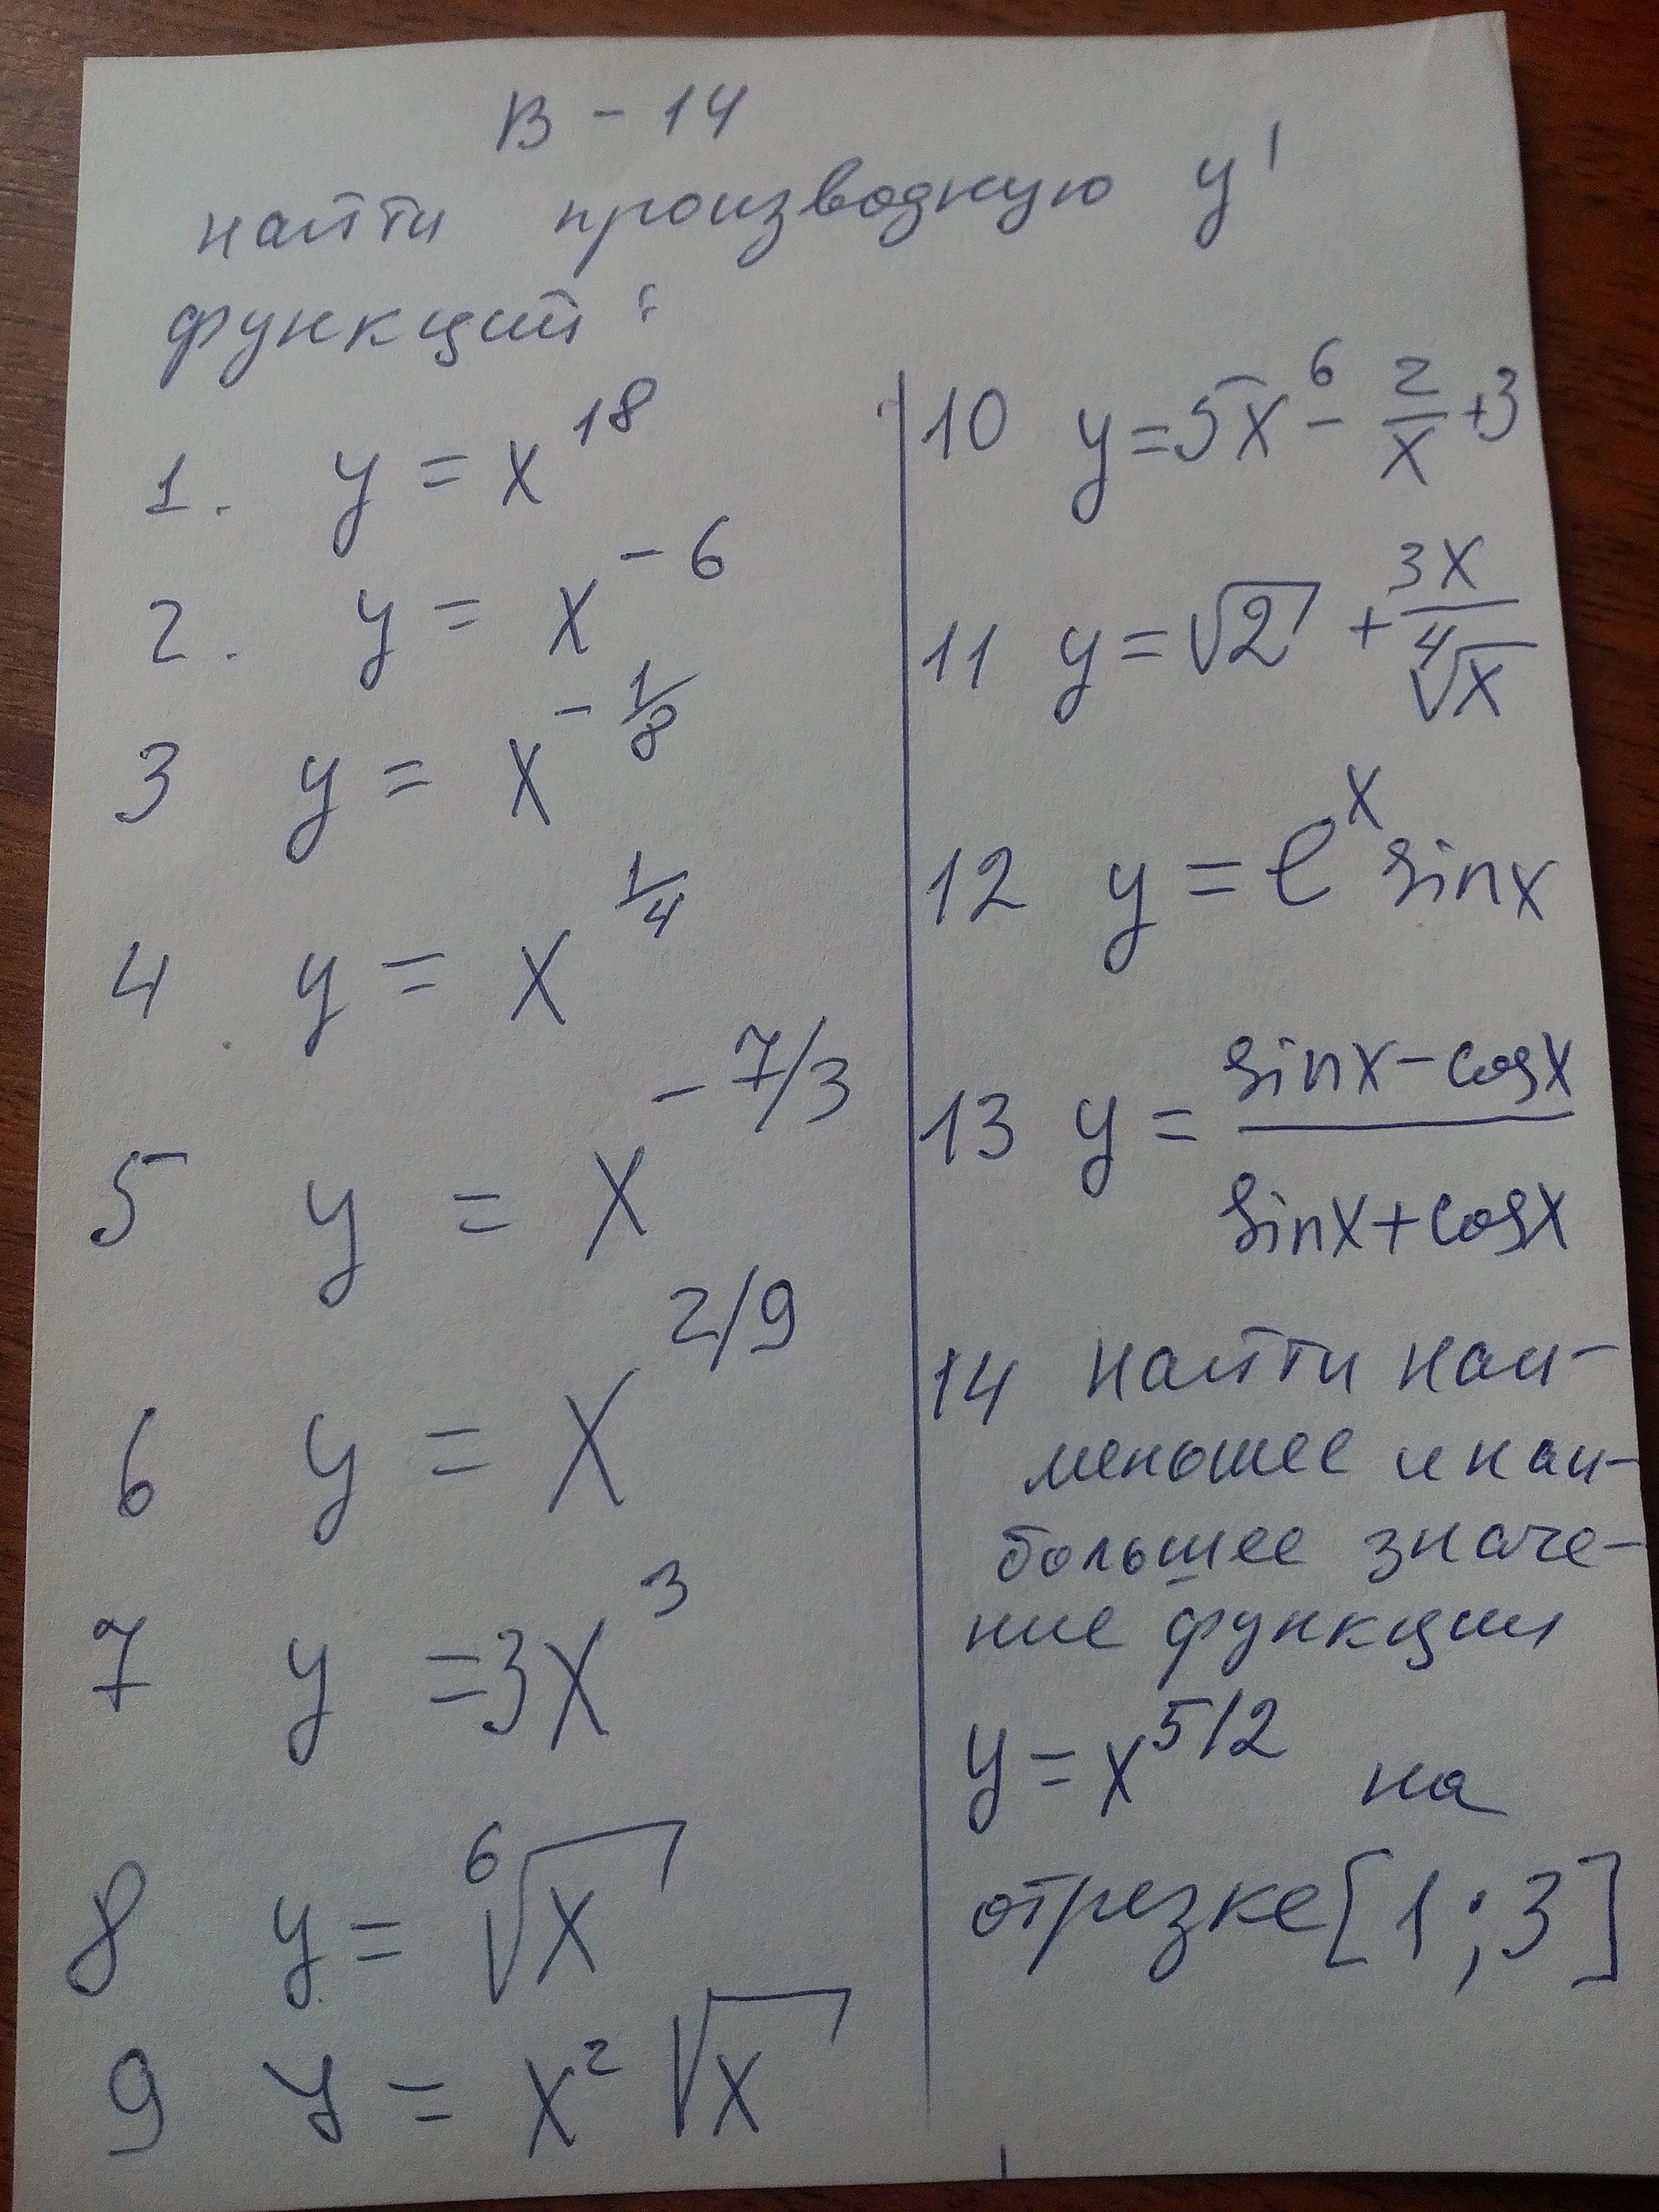 В - 14
найти производную y'
функций:
1. y = x^18
2. y = x^-6
3 y = x^-1/8
4 y = x^1/4
5 y = x^-7/3
6 y = x^2/9
7 y = 3x^3
8 y = ⁶√x
9 y = x² √x
10 y = 5x^6 - 2/x + 3
11 y = √2 + 3x/⁴√x
12 y = e^x sinx
13 y = (sinx - cosx)/(sinx + cosx)
14 найти наи-
меньшее и наи-
большее значе-
ние функции
y = x^5/2 на
отрезке [1; 3]